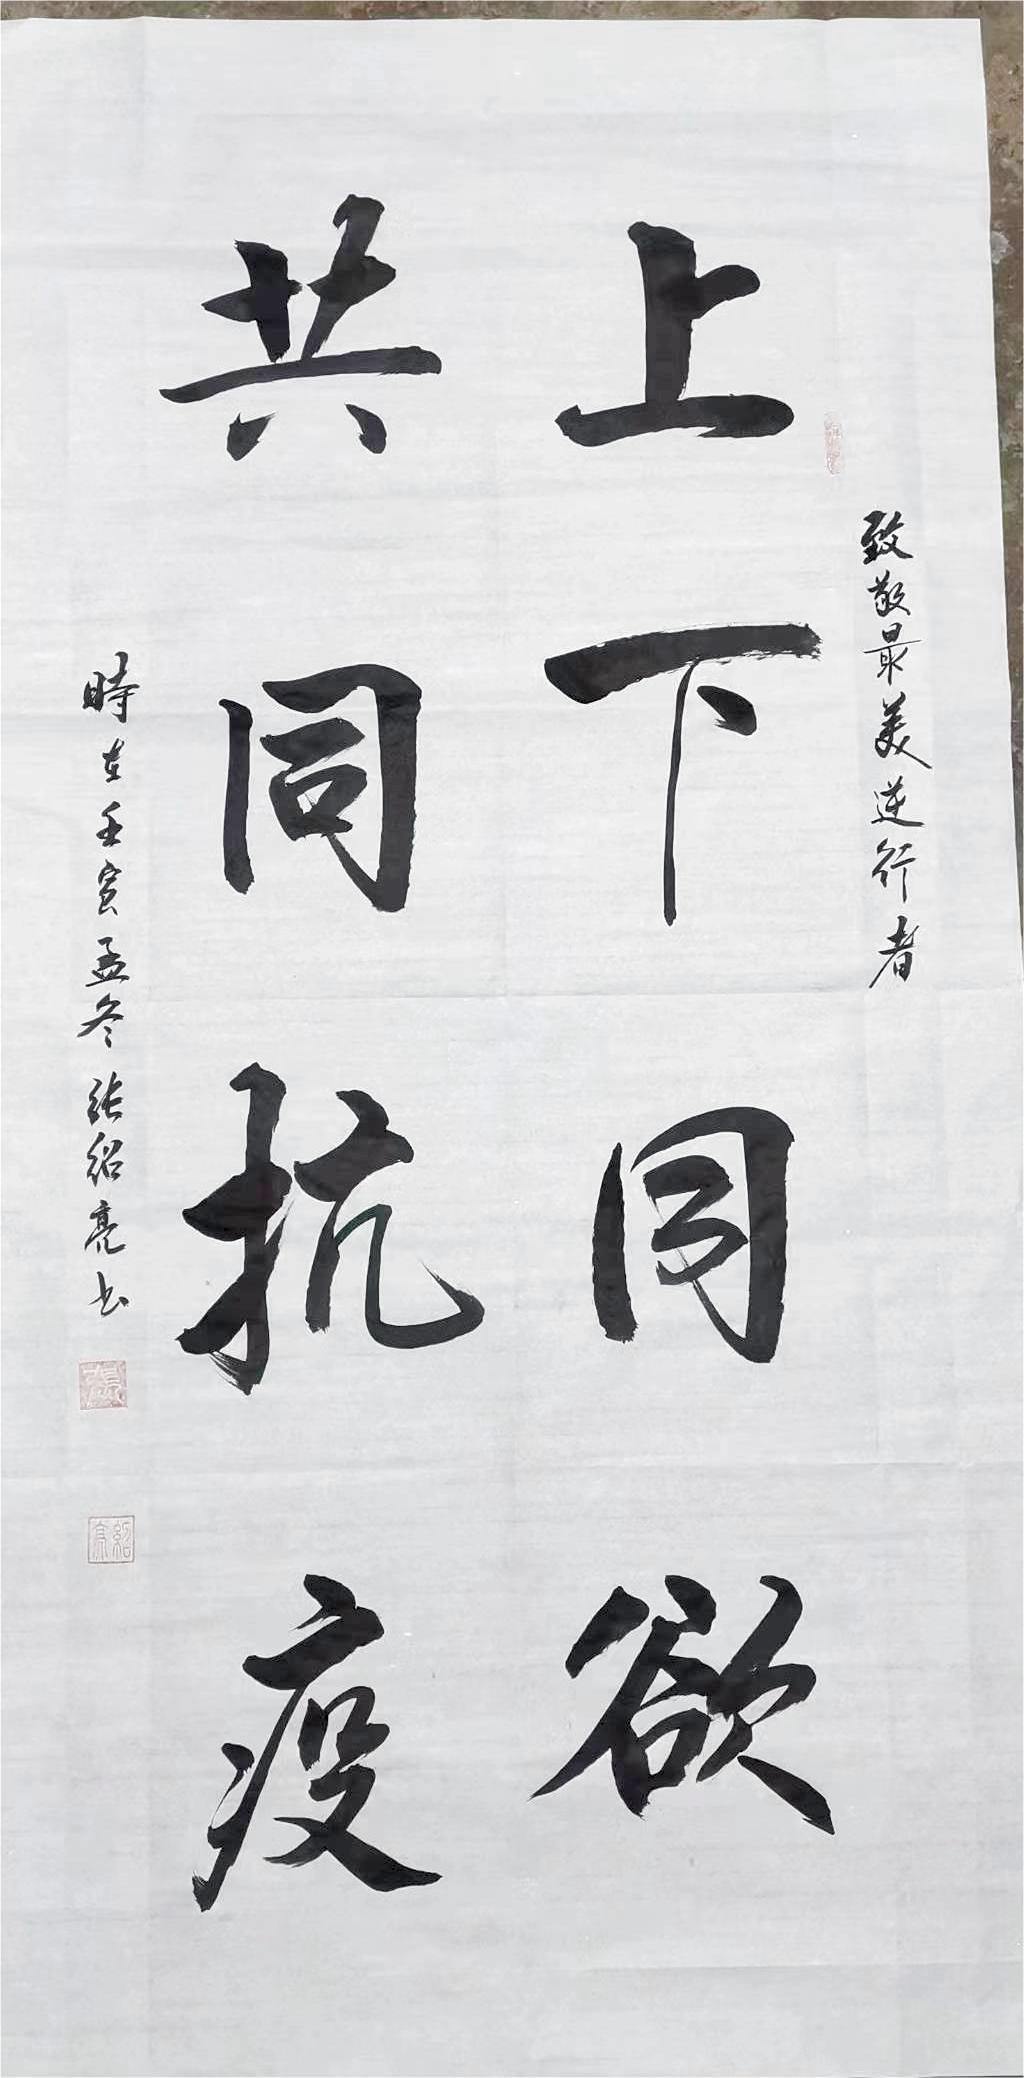 致敬最美逆行者
上下同欲
共同抗疫
時在壬寅孟冬张绍亮书